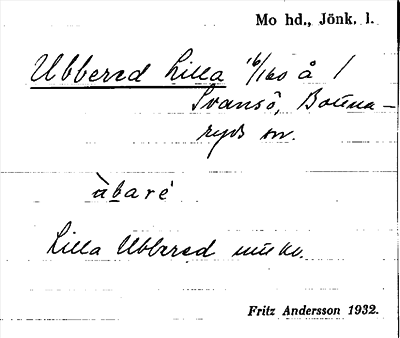 Mo hd., Jönk. l.
Ubbered Lilla 1/6/160 å 1
Svansö, Bottna-
ryds sn.
àbaré
Lilla Ubbered
Fritz Andersson 1932.